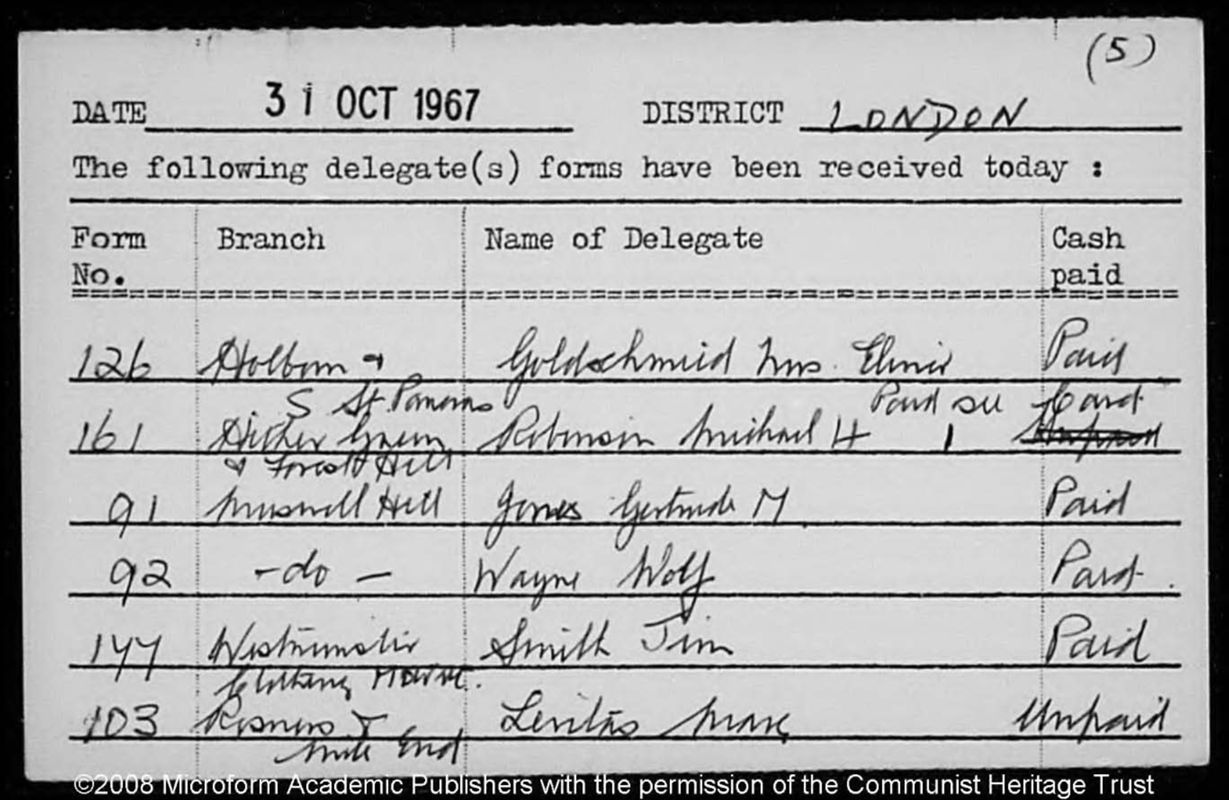 (5)
DATE 31 OCT 1967 DISTRICT LONDON
The following delegate(s) forms have been received today :
Form No. Branch Name of Delegate Cash paid
126 Holborn & Goldschmeid Mrs. Elinor Paid
S St. Pancras Paid see Card
161 Hither Green Robinson Michael H 1 Unpaid
& Forest Hill
91 Muswell Hill Jones Gertrude M Paid
92 - do - Wayne Wolf Paid.
Westminster Smith Jim Paid
Clothing
103 & Levitas Max Unpaid
Mile End
©2008 Microform Academic Publishers with the permission of the Communist Heritage Trust